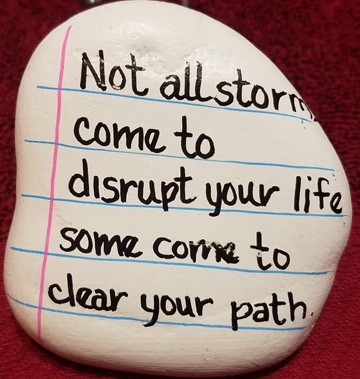 Not all storms
come to
disrupt your life
some come to
clear your path.